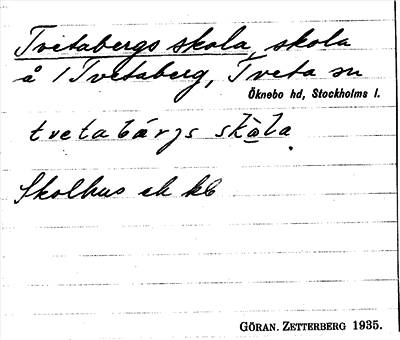 Tvetabergs skola, skola
å 1 Tvetaberg, Tveta sn
Öknebo hd, Stockholms l.
tvetabárjs skàla
Skolhus ek kb
GÖRAN. ZETTERBERG 1935.